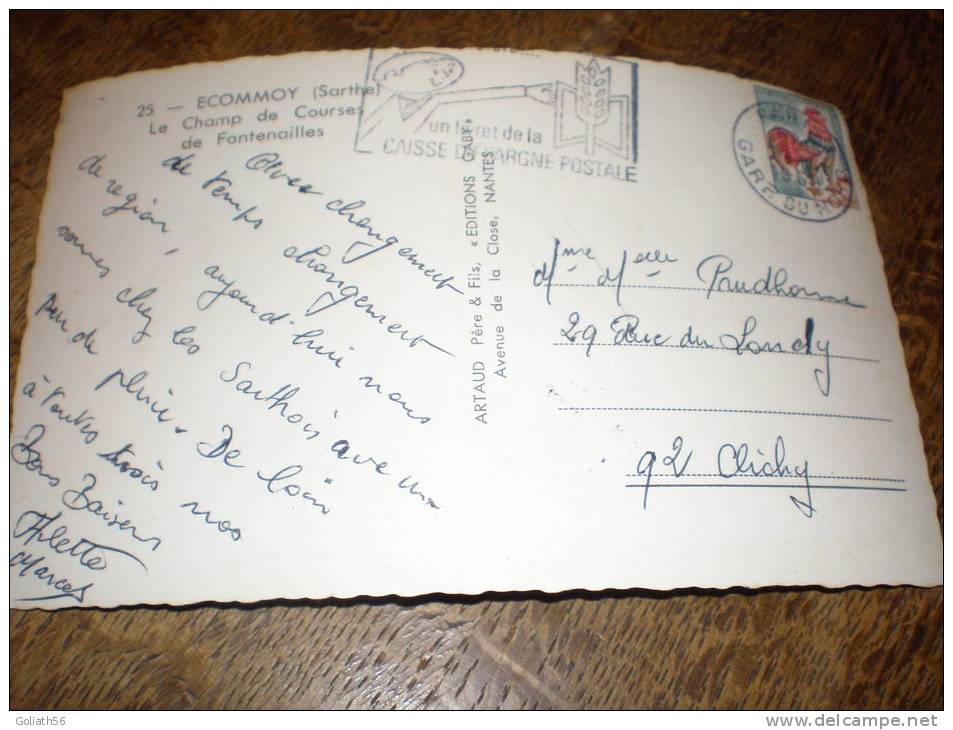 25 — ECOMMOY (Sarthe)
Le Champ de Courses
de Fontenailles
un livret de la
CAISSE D'EPARGNE POSTALE
GARE DU
Avec changement
de temps changement
de région, aujourd'hui nous
sommes chez les Sarthois avec un
peu de pluie. De loin
à toutes trois nos
Bons Baisers
Arlette
Marcel
ARTAUD Père & Fils, « EDITIONS GABY »
Avenue de la Close, NANTES
Mme Melle Prudhomme
29 Rue du Landy
92 Clichy
Goliath56
www.delcampe.net